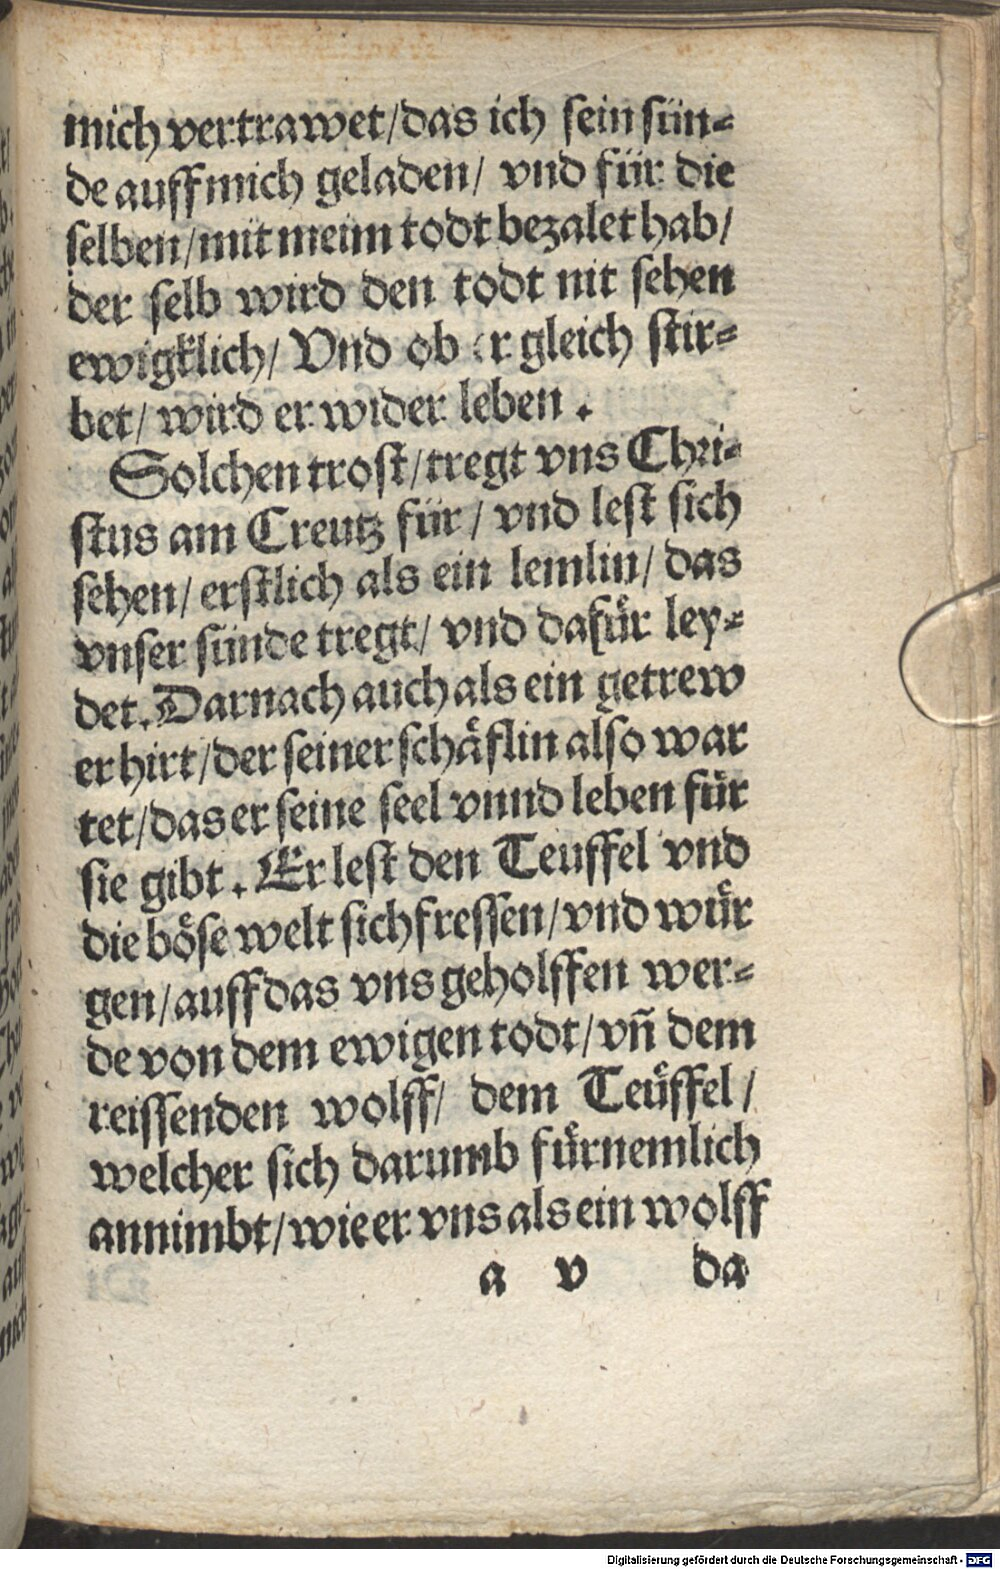 mich vertrawet/das ich sein sün-
de auff mich geladen/ vnd für die
selben/mit meim todt bezalet hab/
der selb wird den todt nit sehen
ewigklich/ Vnd ob er gleich stir-
bet/ wird er wider leben.
Solchen trost/tregt vns Chri-
stus am Creutz für/ vnd lest sich
sehen/ erstlich als ein lemlin/ das
vnser sünde tregt/ vnd dafuͤr ley-
det. Darnach auch als ein getrew
er hirt/der seiner schaͤflin also war
tet/das er seine seel vnnd leben fuͤr
sie gibt. Er lest den Teuffel vnd
die boͤse welt sich fressen/vnd wuͤr
gen/auff das vns geholffen wer-
de von dem ewigen todt/vñ dem
reissenden wolff/ dem Teuͤffel/
welcher sich darumb fuͤrnemlich
annimbt/wie er vns als ein wolff
a v da
Digitalisierung gefördert durch die Deutsche Forschungsgemeinschaft - DFG